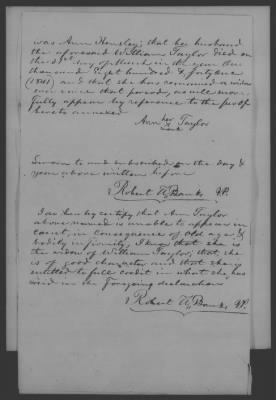 was Ann Hensley; that her husband
the aforesaid William Taylor died on
the 3rd day of March in the year One
thousand Eight hundred & forty one
(1841) and that she has remained a widow
ever since that period, as will more
fully appear by reference to the proof
hereto annexed
Ann her Taylor
mark
Sworn to and subscribed on the day &
year above written before
Robert A. Banks J.P.
I do hereby certify that Ann Taylor
above named is unable to appear in
court, in consequence of old age &
bodily infirmity, I know that she is
the widow of William Taylor; that she
is of good character and that she is
entitled to full credit in what she has
said in the foregoing declaration
Robert A. Banks J.P.